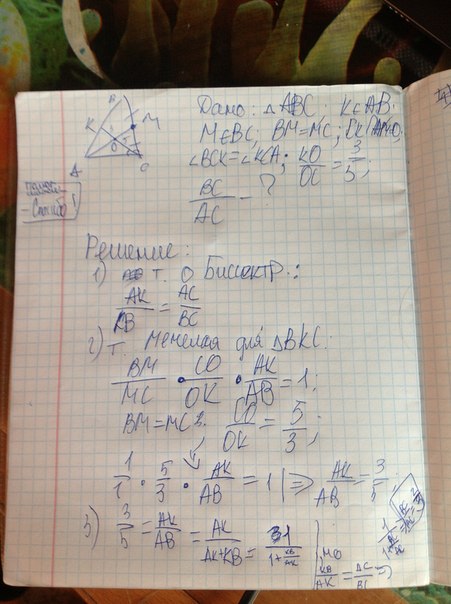 Дано: △ABC. K∈AB.
M∈BC; BM=MC; CK∩AM=O,
∠BCK=∠KCA; KO/OC = 3/5;
BC/AC - ?
B
K
M
O
A
C
Спасибо!
Решение:
1) Т. О Биссектр.:
AK/KB = AC/BC
2) Т. Менелая для △BKC.
BM/MC · CO/OK · AK/AB = 1;
BM=MC CO/OK = 5/3;
1/1 · 5/3 · AK/AB = 1 | ⇒ AK/AB = 3/5;
3) 3/5 = AK/AB = AK/(AK+KB) = 1/(1+KB/AK)
но
KB/AK = BC/AC ⇒